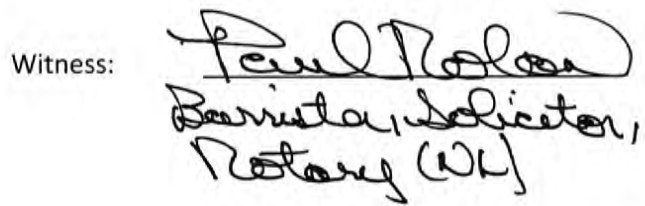 Witness: Paul Nolan
Barrister, Solicitor,
Notary (NL)